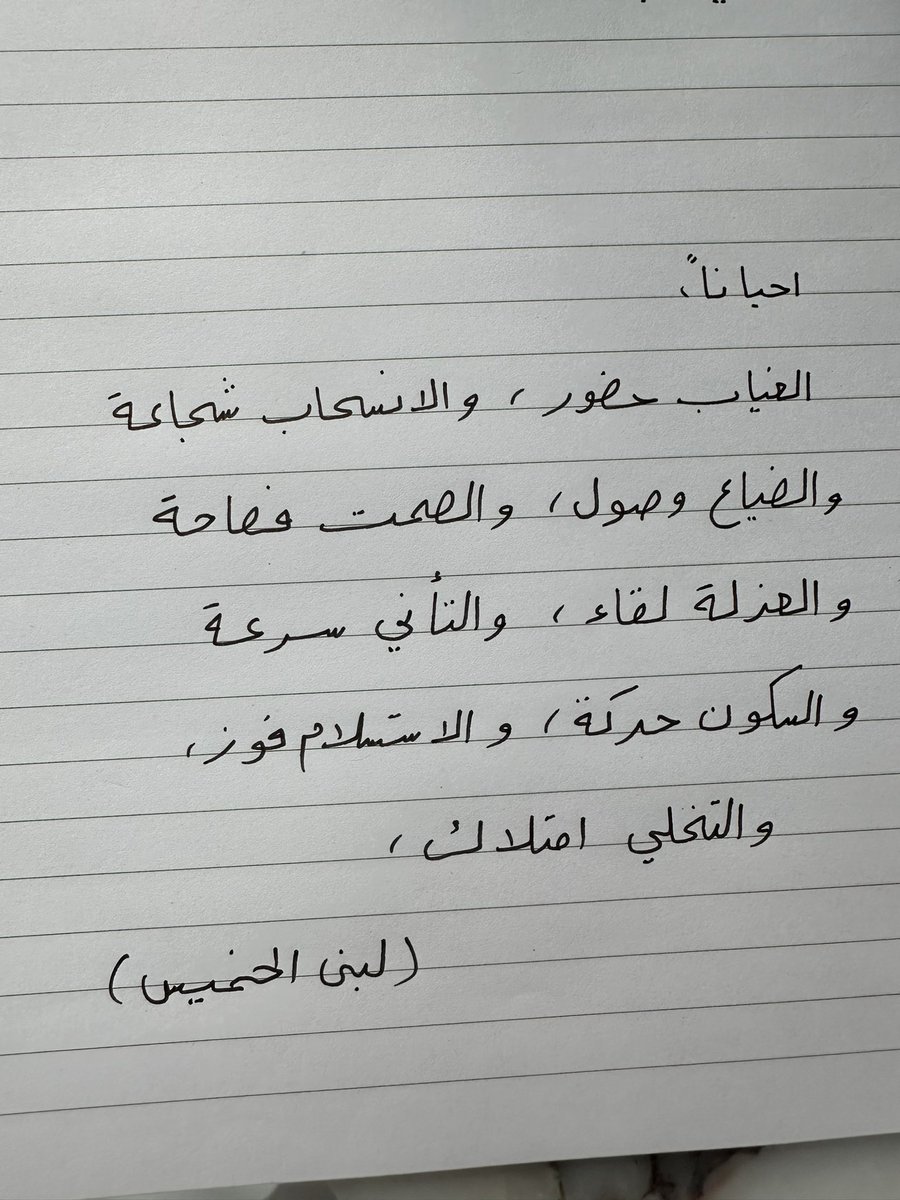 احياناً،
الغياب حضور، والانسحاب شجاعة
والضياع وصول، والصمت فصاحة
والعزلة لقاء، والتأني سرعة
والسكون حركة، والاستسلام فوز،
والتخلي امتلاك،
(لبنى الخميس)